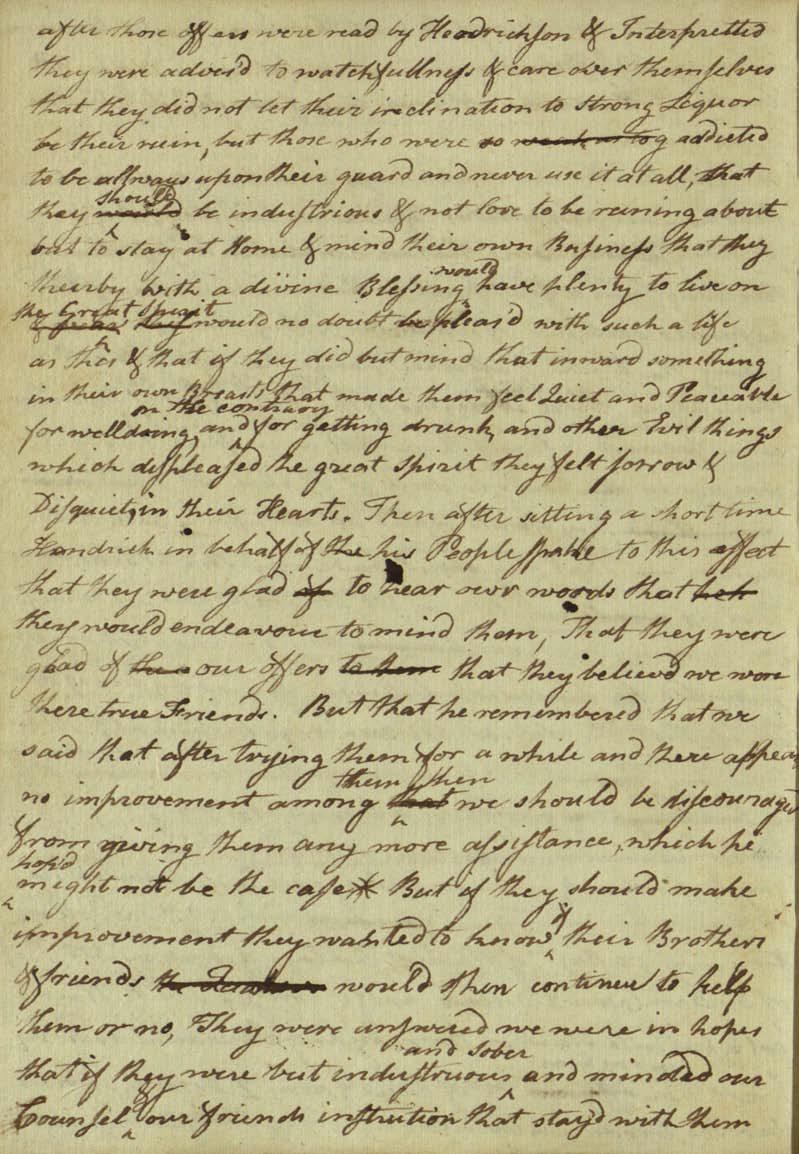 after those offers were read by Hendrickson & Interpretted
they were advis'd to watchfullness & care over themselves
that they did not let their inclination to strong Liquor
be their ruin, but those who were so weak as to g addicted
to be allways upon their guard and never use it at all, that
should
they would be industrious & not love to be runing about
but to stay at Home & mind their own Business that they
would
thereby with a divine Blessing have plenty to live on
the Great Spirit
would no doubt be pleas'd with such a life
as this & that if they did but mind that inward something
in their own Breasts that made them feel Quiet and Peaceable
on the contrary
for welldoing, and for getting drunk, and other Evil things
which displeased the great Spirit they felt sorrow &
Disquiet, in their Hearts. Then after sitting a short time
Hendrick in behalf of the his People spoke to this effect
that they were glad of to hear our words that heh
they would endeavour to mind them, That they were
glad of the our offers to them that they believed we were
there true Friends. But that he remembered that we
said that after trying them for a while and there appear
them then
no improvement among that we should be discouraged
from giving them any more assistance, which he
hop'd
might not be the case But if they should make
if
improvement they wanted to know their Brothers
& friends the Quakers would then continue to help
them or no, They were answered we were in hopes
and sober
that if they were but industruous and minded our
&
Counsel our friends instrution that stay'd with them